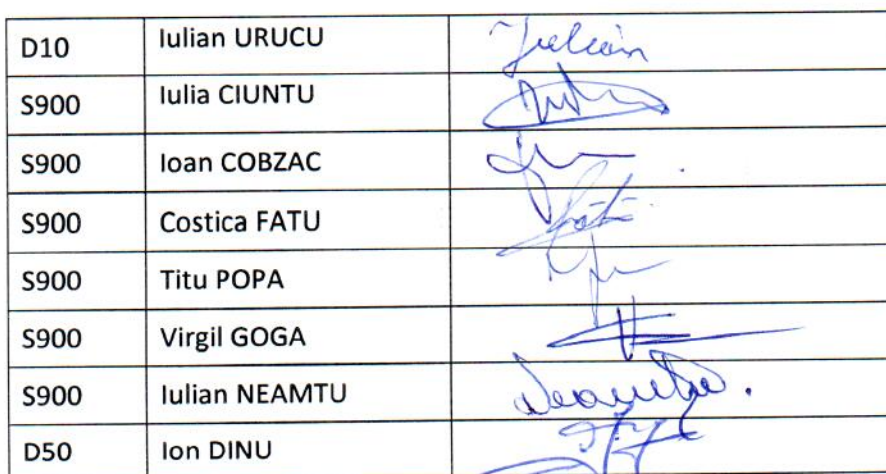 D10 Iulian URUCU Iulian
S900 Iulia CIUNTU
S900 Ioan COBZAC
S900 Costica FATU
S900 Titu POPA
S900 Virgil GOGA
S900 Iulian NEAMTU Neamtu.
D50 Ion DINU